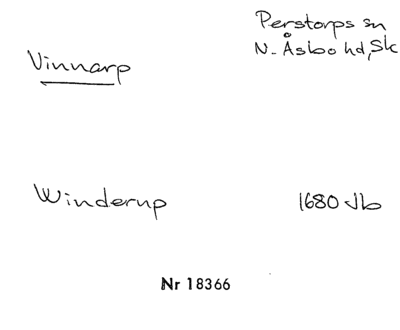 Perstorps sn
Vinnarp N. Åsbo hd, Sk
Winderup 1680 Jb
Nr 18366